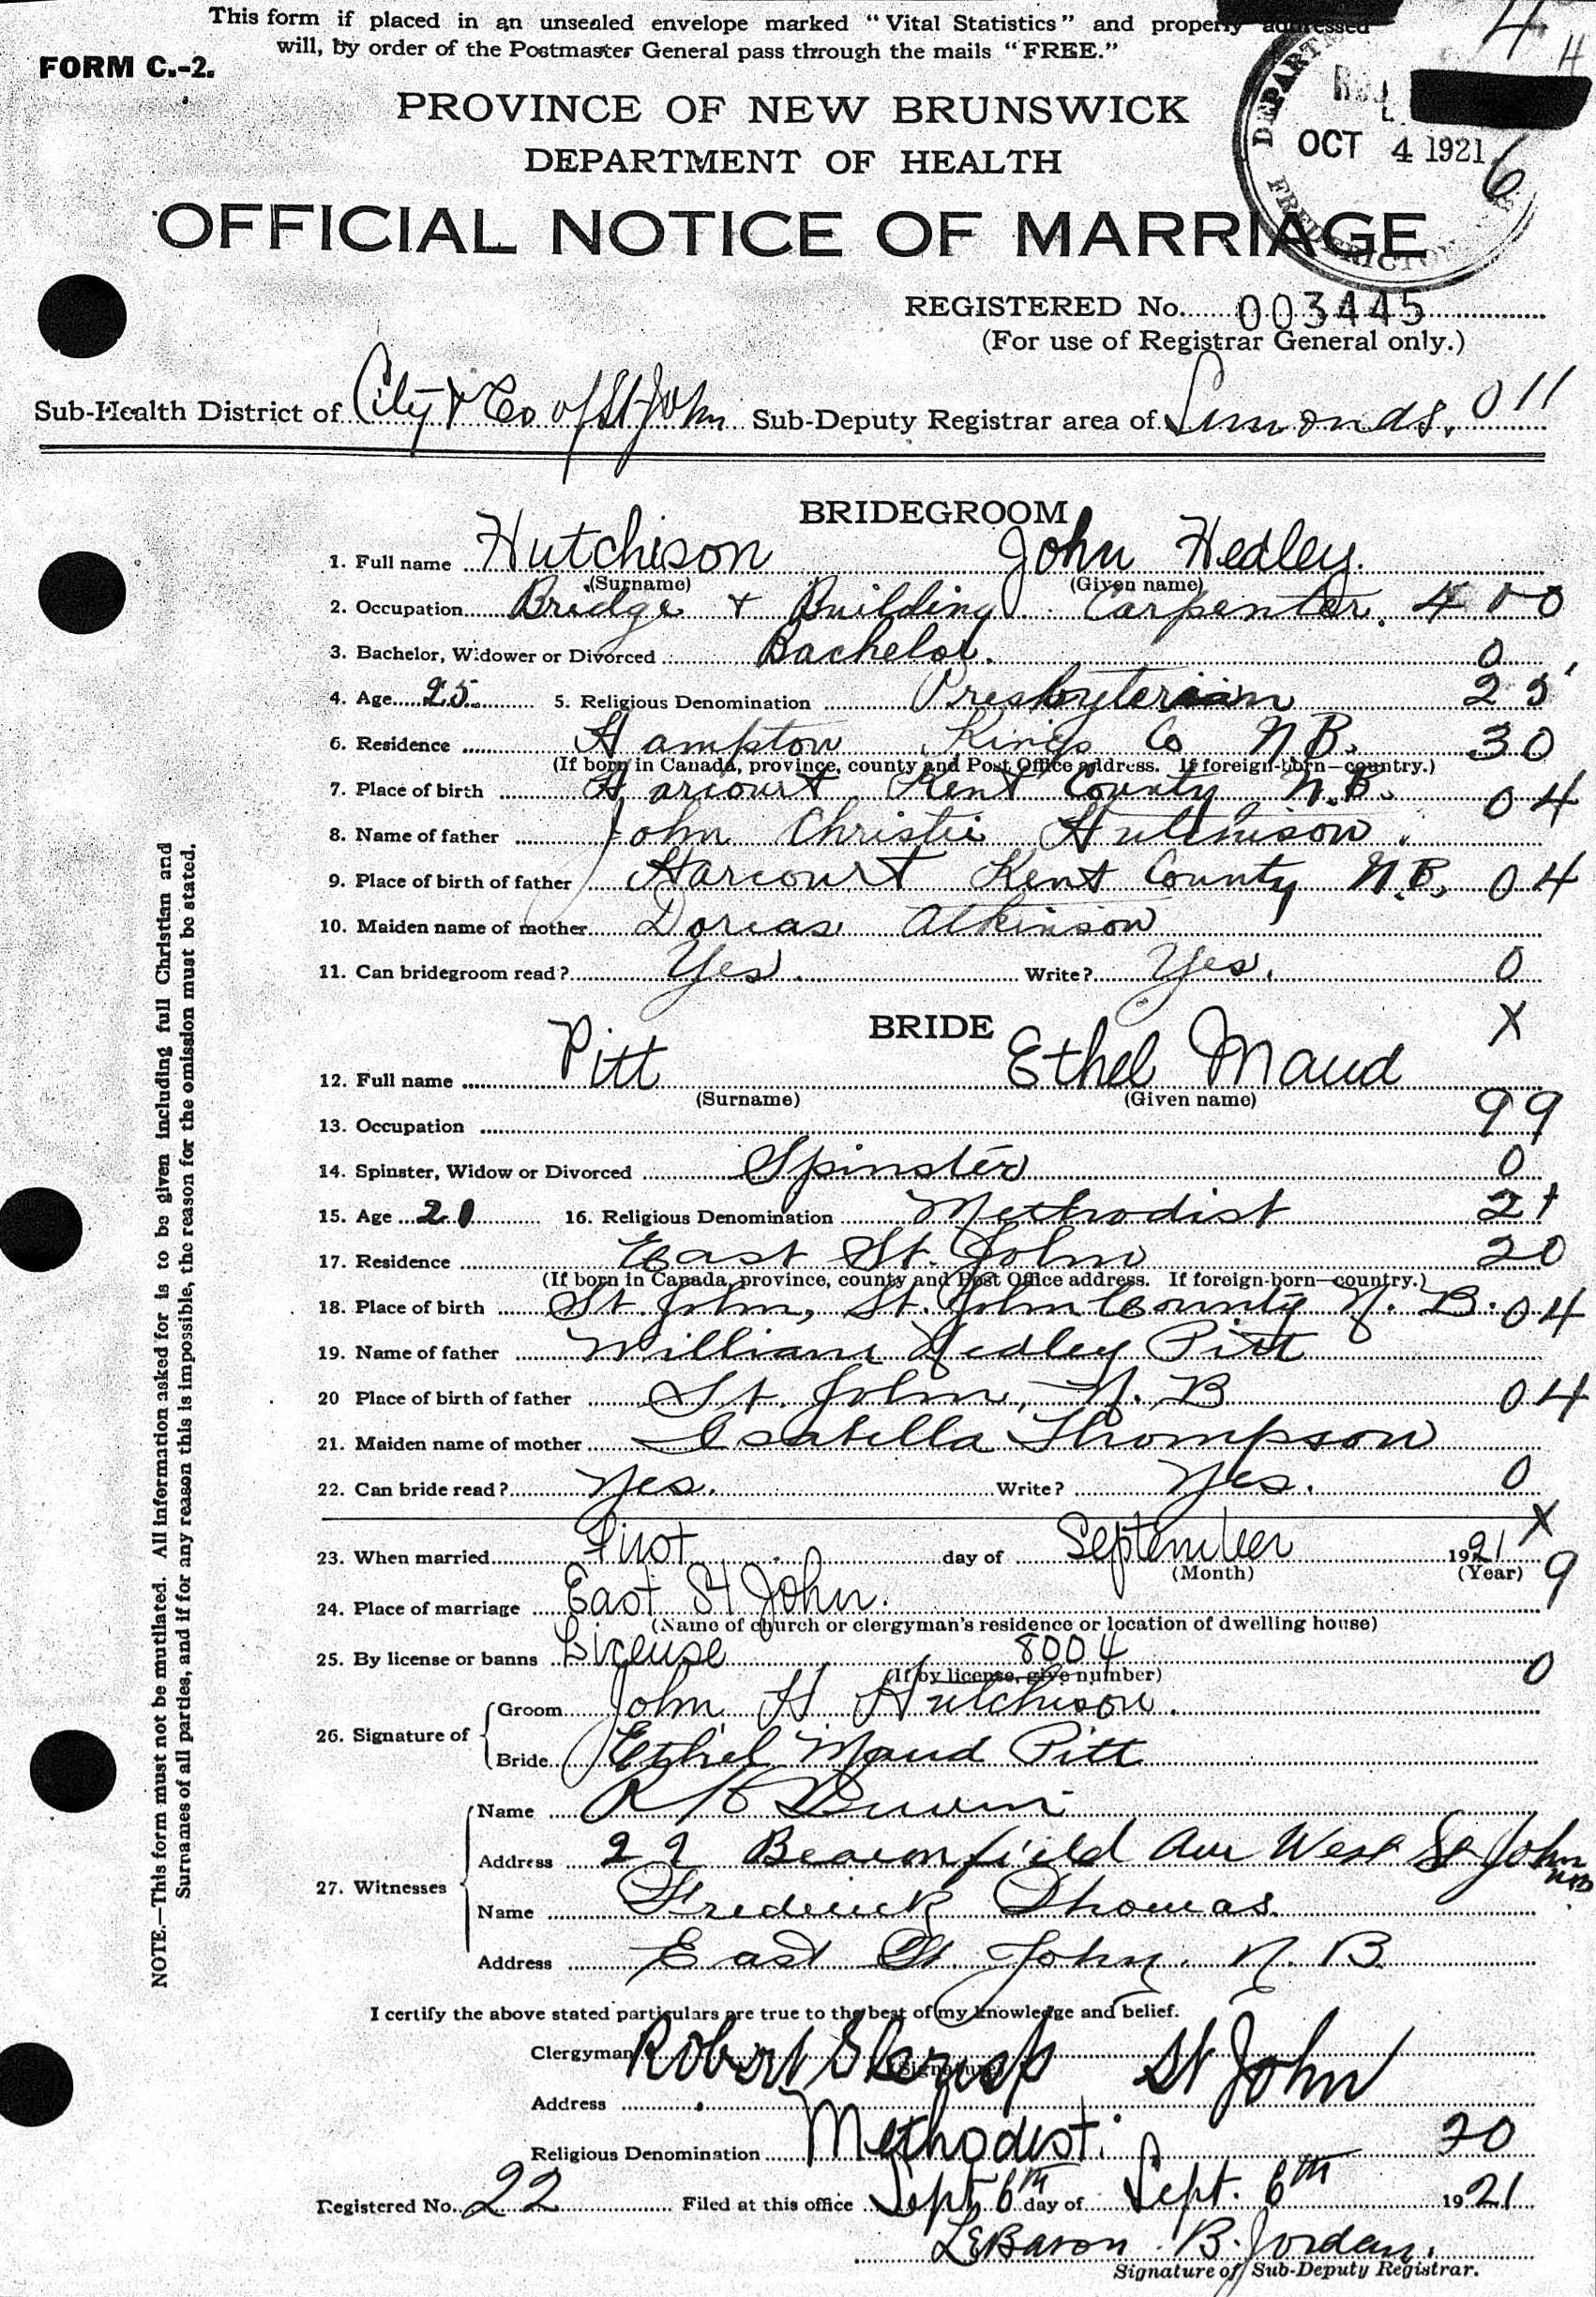 This form if placed in an unsealed envelope marked "Vital Statistics" and properly addressed
will, by order of the Postmaster General pass through the mails "FREE."
FORM C.-2.
4 H
PROVINCE OF NEW BRUNSWICK
DEPARTMENT OF HEALTH
OCT 4 1921
6
OFFICIAL NOTICE OF MARRIAGE
REGISTERED No. 003445
(For use of Registrar General only.)
Sub-Health District of City & Co of St John Sub-Deputy Registrar area of Simonds. 011
BRIDEGROOM
1. Full name Hutchison John Hedley.
(Surname) (Given name)
2. Occupation Bridge + Building Carpenter. 400
3. Bachelor, Widower or Divorced Bachelor. 0
4. Age 25 5. Religious Denomination Presbyterian 25
6. Residence Hampton Kings Co N.B. 30
(If born in Canada, province, county and Post Office address. If foreign-born—country.)
7. Place of birth Harcourt Kent County N.B. 04
8. Name of father John Christie Hutchison.
9. Place of birth of father Harcourt Kent County N.B. 04
10. Maiden name of mother Dorcas Atkinson
11. Can bridegroom read? Yes. Write? Yes. 0
BRIDE X
12. Full name Pitt Ethel Maud
(Surname) (Given name)
13. Occupation 99
14. Spinster, Widow or Divorced Spinster 0
15. Age 16. Religious Denomination Methodist 21
17. Residence East St. John 20
(If born in Canada, province, county and Post Office address. If foreign-born—country.)
18. Place of birth St. John, St. John County N. B. 04
19. Name of father William Hedley Pitt
20 Place of birth of father St. John, N. B 04
21. Maiden name of mother Isabella Thompson
22. Can bride read? Yes. Write? Yes. 0
X
23. When married First day of September 1921
(Month) (Year) 9
24. Place of marriage East St John.
(Name of church or clergyman's residence or location of dwelling house)
25. By license or banns License 8004 0
(If by license, give number)
26. Signature of Groom John H Hutchison.
Bride Ethel Maud Pitt
27. Witnesses Name R H
Address 22 Beaconfield Ave West St John NB
Name Frederick Thomas
Address East St. John. N. B
I certify the above stated particulars are true to the best of my knowledge and belief.
Clergyman Robert St John
(Signature)
Address
Religious Denomination Methodist. 20
Registered No. 22 Filed at this office Sept 6th day of Sept. 6th 1921
LeBaron B. Jordan.
Signature of Sub-Deputy Registrar.
NOTE.—This form must not be mutilated. All information asked for is to be given including full Christian and
Surnames of all parties, and if for any reason this is impossible, the reason for the omission must be stated.